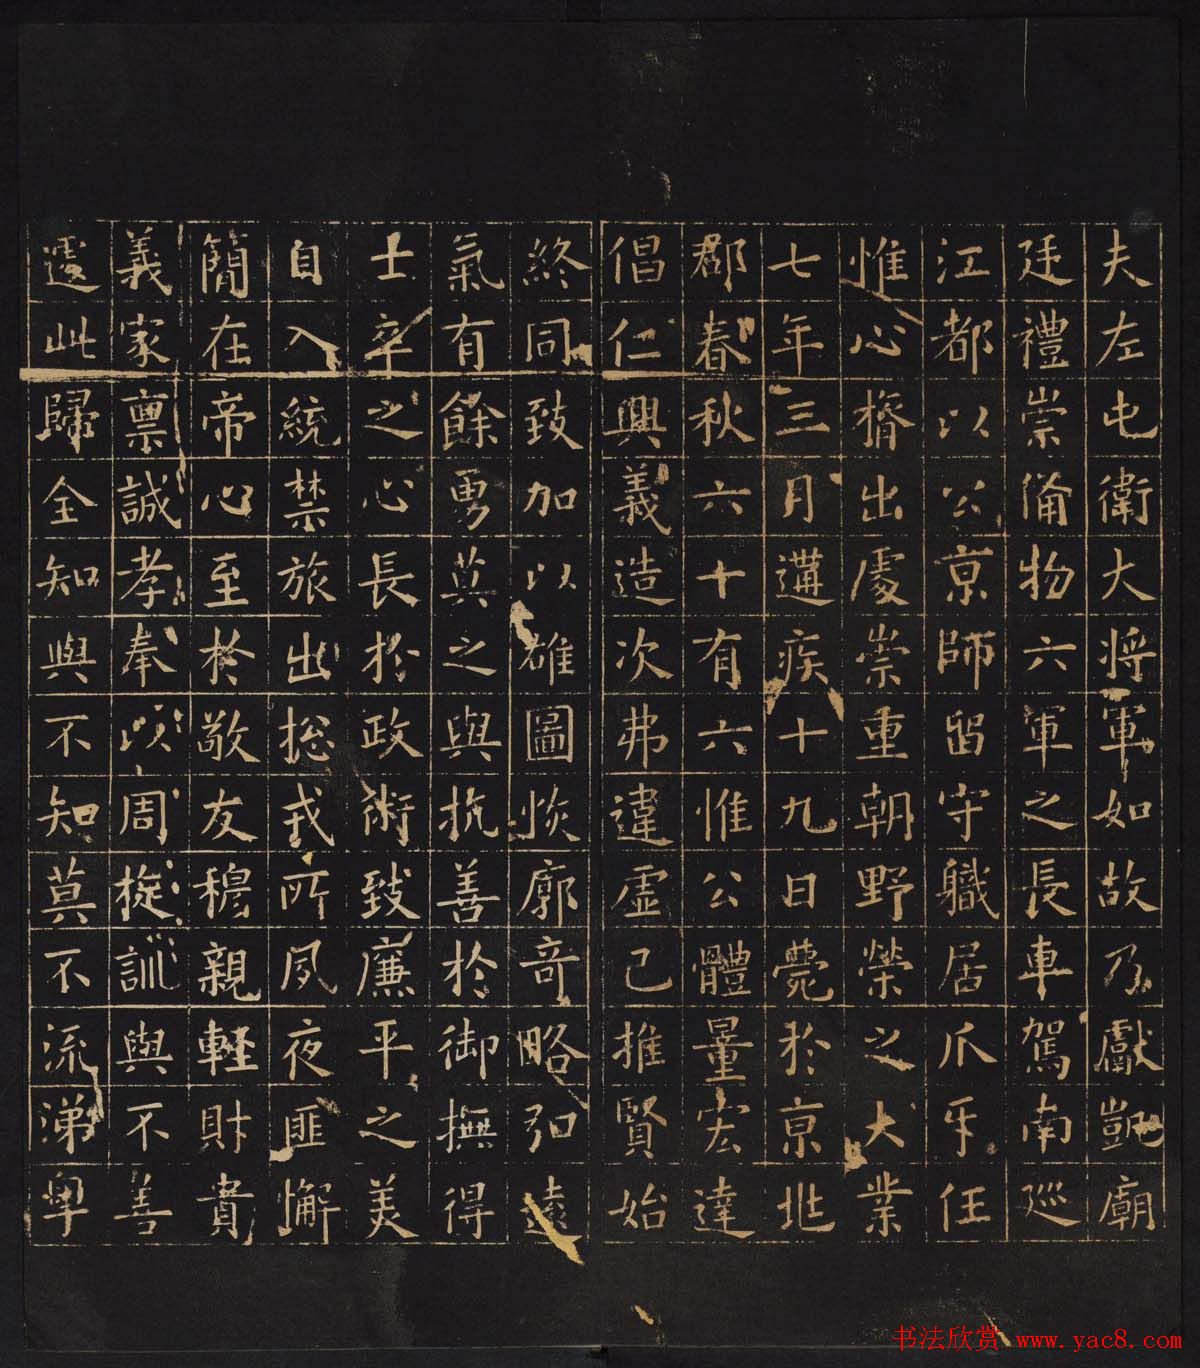 夫左屯衛大將軍如故乃獻凱廟
廷禮崇俻物六軍之長車駕南巡
江都以公京師留守職居爪牙任
惟心膂出處崇重朝野榮之大業
七年三月遘疾十九日薨於京兆
郡春秋六十有六惟公體量宏達
倡仁興義造次弗違虛己推賢始
終同致加以雄圖恢廓奇略弘遠
氣有餘勇莫之與抗善於御撫得
士卒之心長於政術致廉平之美
自入統禁旅出揔戎所夙夜匪懈
簡在帝心至於敬友穆親輕財貴
義家稟誠孝奉以周旋訓與不善
遠此歸全知與不知莫不流涕舉
书法欣赏 www.yac8.com